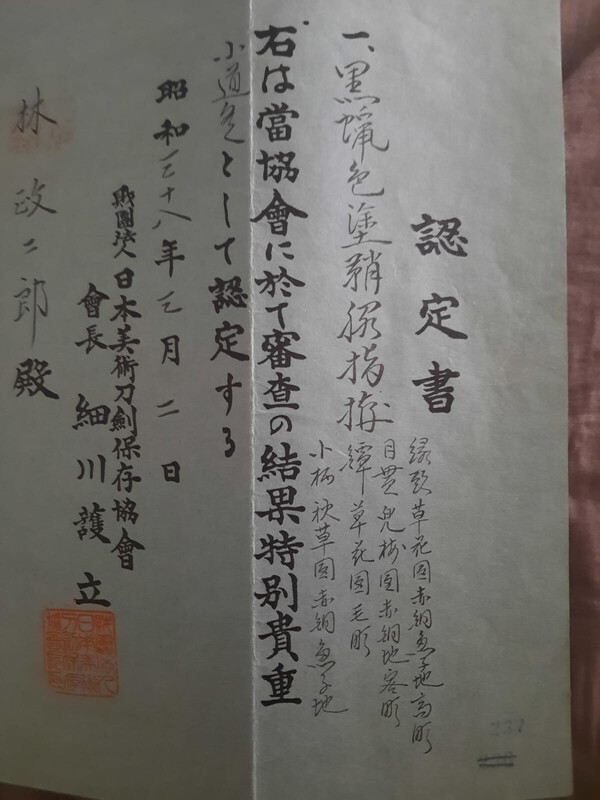 認定書
一、黒蝋色塗鞘脇指拵
縁頭草花図赤銅魚子地高彫
目貫兜梅図赤銅地容彫
鐔草花図毛彫
小柄秋草図赤銅魚子地
右は當協會に於て審査の結果特別貴重
小道具として認定する
昭和三十八年三月二日
財團法人日本美術刀劍保存協會
會長 細川護立
林政二郎殿